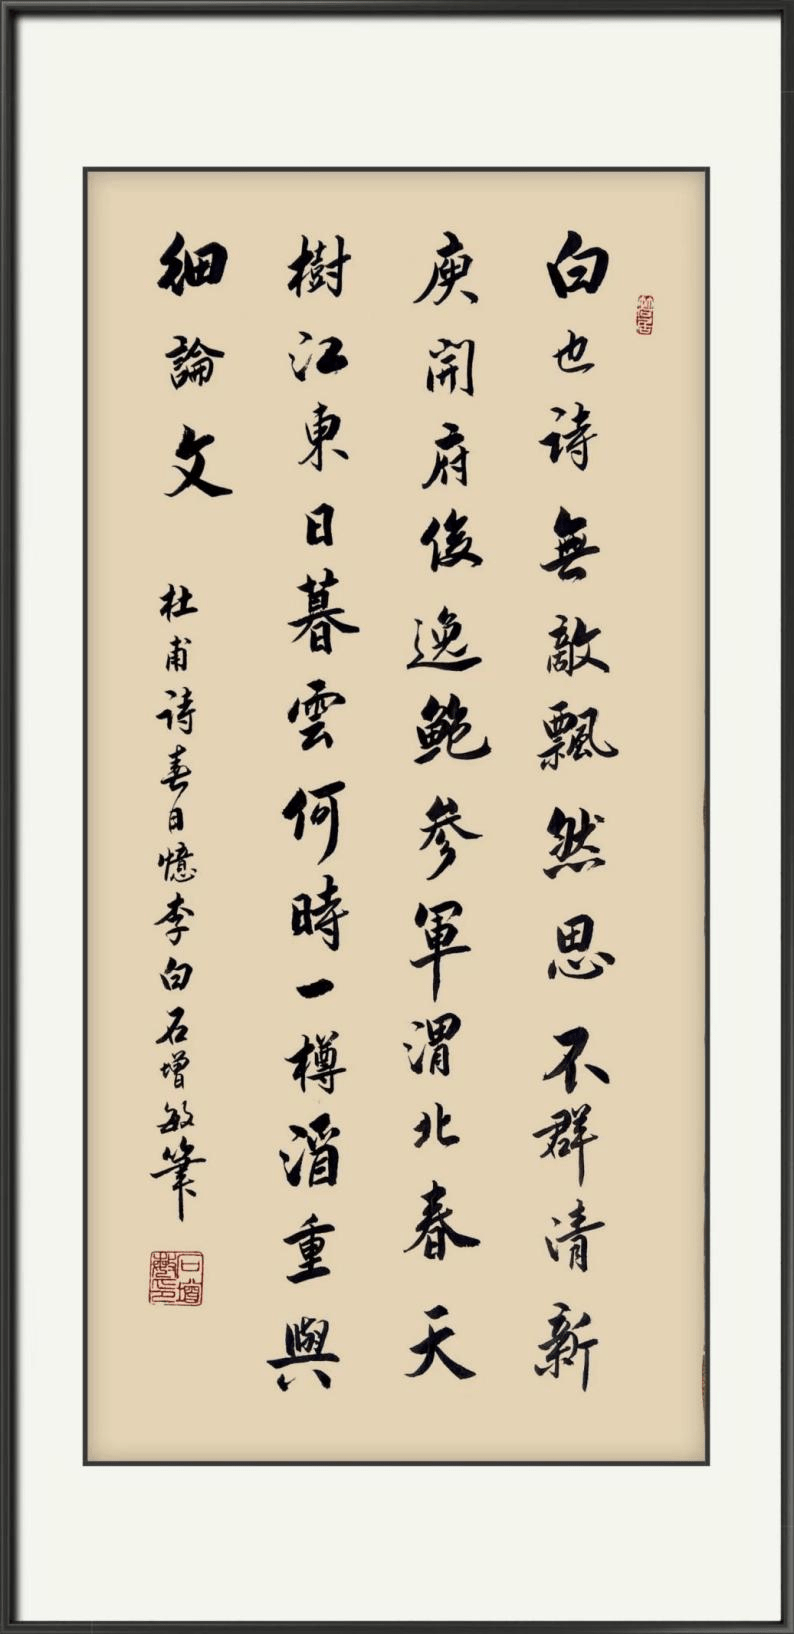 白也詩無敵飄然思不群清新
庾開府俊逸鮑參軍渭北春天
樹江東日暮雲何時一樽酒重與
細論文
杜甫詩春日憶李白石增敏筆
石增敏印